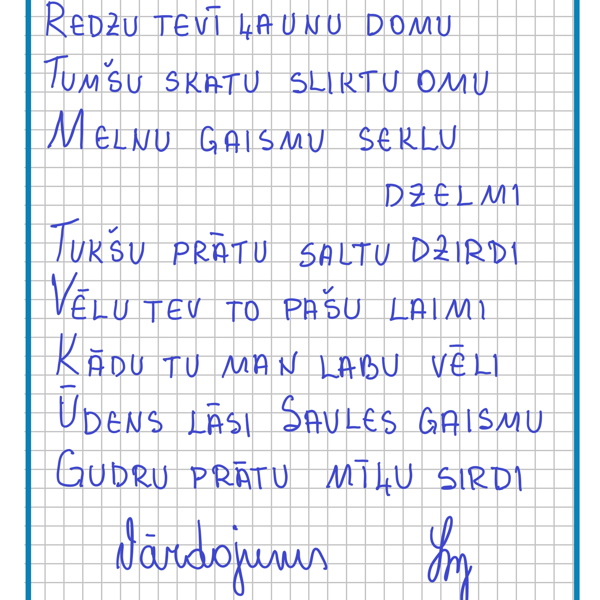 REDZU TEVĪ ĻAUNU DOMU
TUMŠU SKATU SLIKTU OMU
MELNU GAISMU SEKLU
DZELMI
TUKŠU PRĀTU SALTU DZIRDI
VĒLU TEV TO PAŠU LAIMI
KĀDU TU MAN LABU VĒLI
ŪDENS LĀSI SAULES GAISMU
GUDRU PRĀTU MĪĻU SIRDI
Vārdojums